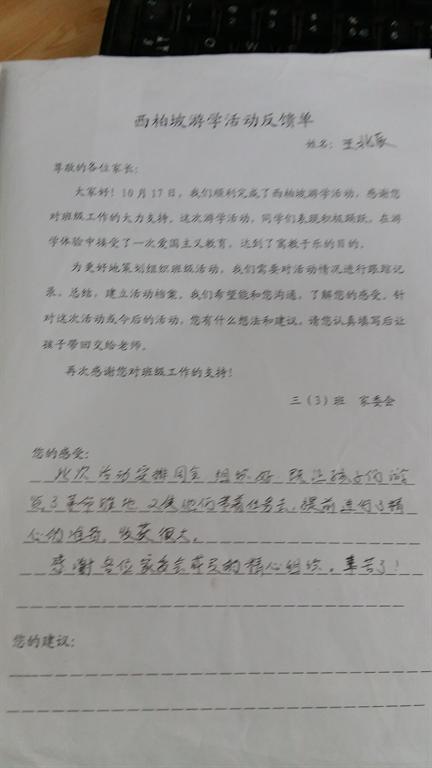 西柏坡游学活动反馈单
姓名：王
尊敬的各位家长：
大家好！10月17日，我们顺利完成了西柏坡游学活动，感谢您
对班级工作的大力支持。这次游学活动，同学们表现积极踊跃，在游
学体验中接受了一次爱国主义教育，达到了寓教于乐的目的。
为更好地策划组织班级活动，我们需要对活动情况进行跟踪记
录、总结，建立活动档案。我们希望能和您沟通，了解您的感受。针
对这次活动或今后的活动，您有什么想法和建议，请您认真填写后让
孩子带回交给老师。
再次感谢您对班级工作的支持！
三（3）班 家委会
您的感受：
此次活动安排周全 组织好 既让孩子们游
览了革命胜地 又使他们带着任务去，提前进行了精
心的准备，收获很大。
感谢各位家委会成员的精心组织，辛苦了！
您的建议：